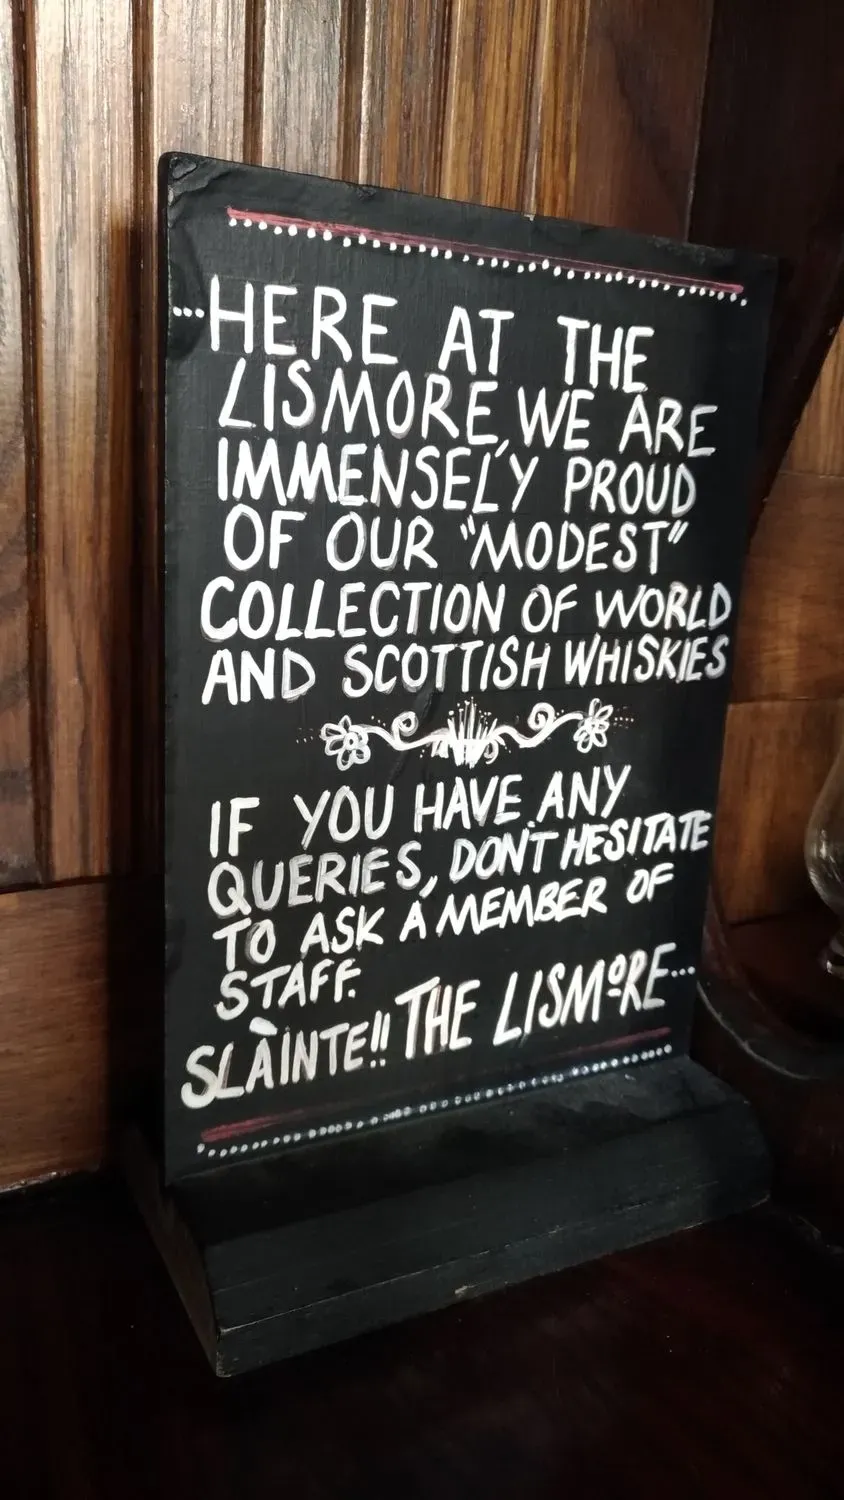 ...HERE AT THE
LISMORE, WE ARE
IMMENSELY PROUD
OF OUR "MODEST"
COLLECTION OF WORLD
AND SCOTTISH WHISKIES
IF YOU HAVE ANY
QUERIES, DON'T HESITATE
TO ASK A MEMBER OF
STAFF.
SLÀINTE!! THE LISMORE...